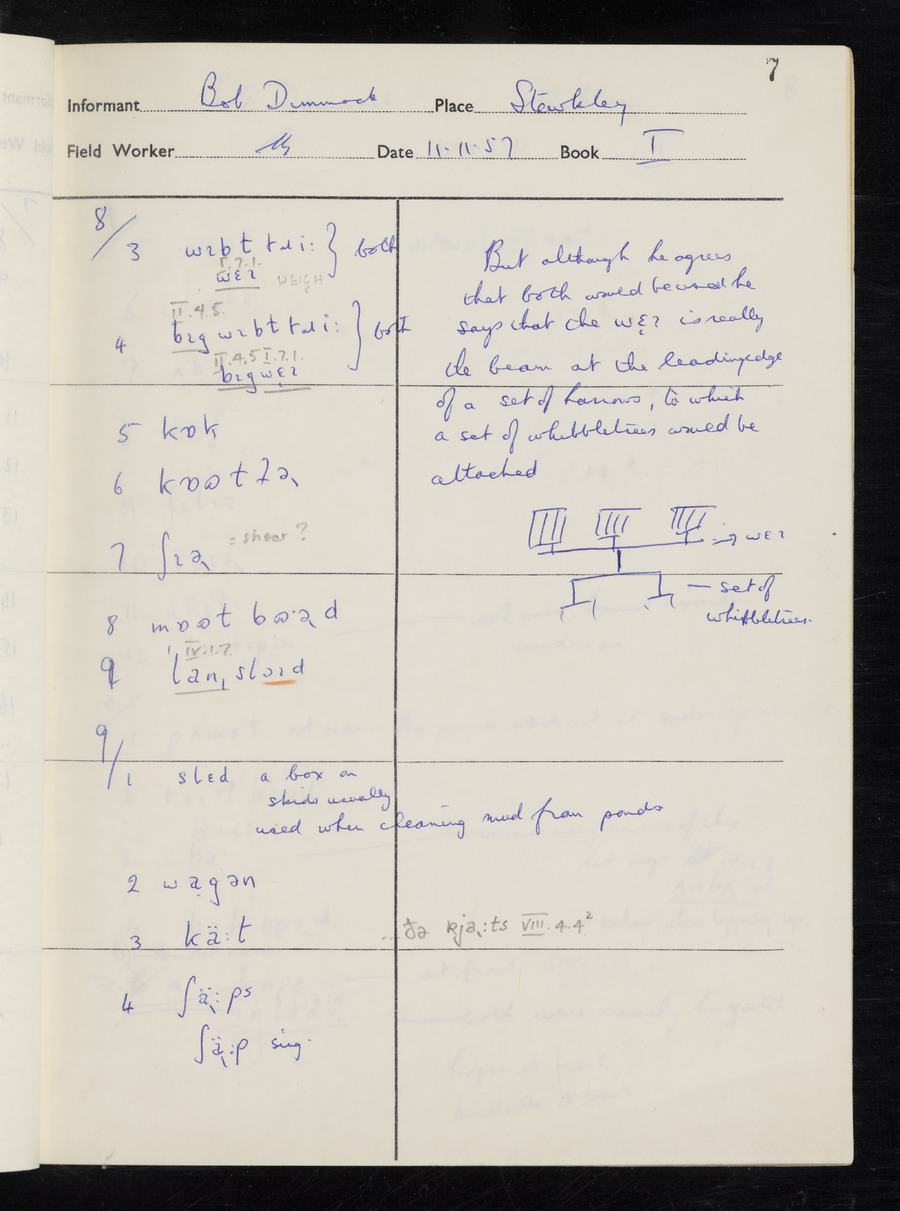 7
Informant Bob Dimmock Place Stewkley
Field Worker Date 11.11.57 Book I
8/
3 wɪbt tɹiː } both
I.7.1.
wɛɪ WEIGH
II.4.5.
4 bɪg wɪbt tɹiː } both
II.4.5 I.7.1.
bɪg wɛɪ
5 kɒk
6
7 ʃɪə = shear?
8
IV.1.7.
9
9/
1 slɛd a box on
skids usually
used when cleaning mud from ponds
2 wagən
3 käːt ðə kjaːts VIII.4.4²
4 ʃäːps
ʃäːp sing.
But although he agrees
that both would be used he
says that the wɛɪ is really
the beam at the leading edge
of a set of harrows, to which
a set of whibbletrees would be
attached
→ wɛɪ
— set of
whibbletrees.